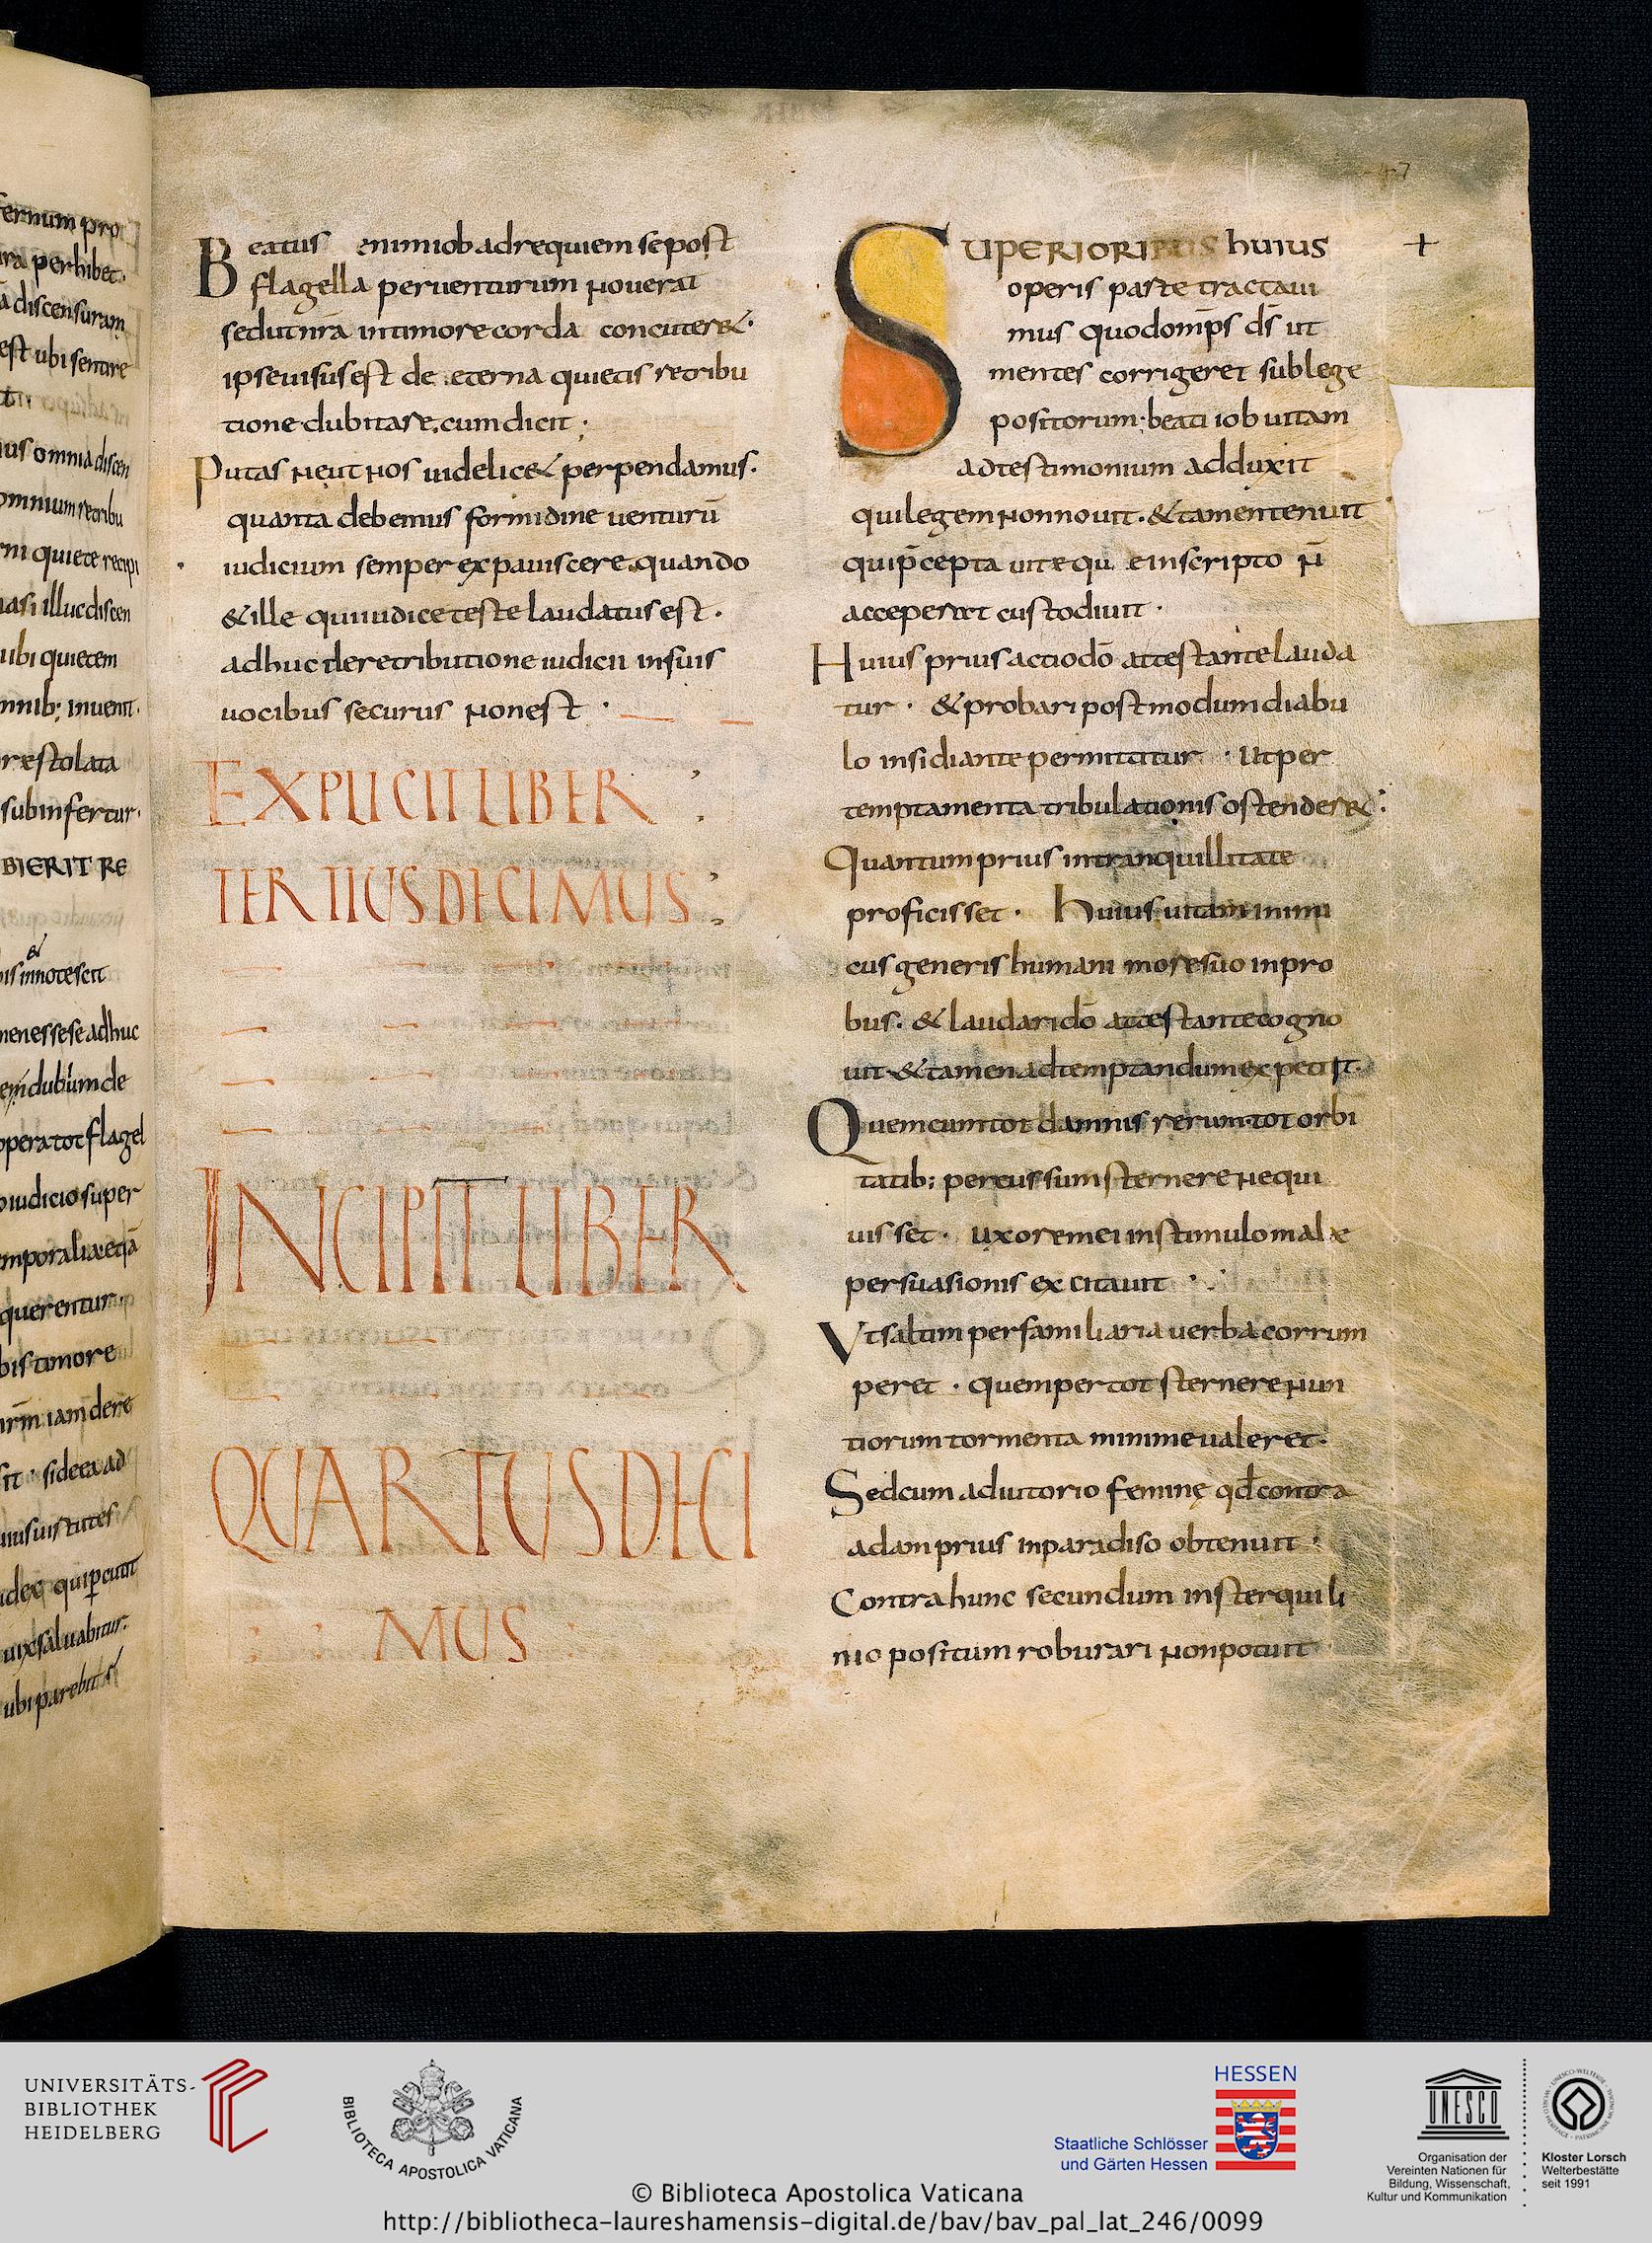 fernum pro
ura perhibet.
a discensuram
est ubi sentire
ius omnia discen
omnium retribu
rni quiete recipi
uasi illuc discen
ubi quietem
mnib; invenit.
restolata
subinfertur.
BIERIT RE
&
bis innotescit
menes sese adhuc
em dubium de
opera tot flagel
o iudicio super
emporalia etiā
querentur.
bis timore
urm̄ iam dere
sit · si de ea ad
uius uirtutes
udex qui percutit
uix saluabitur.
ubi parebit
Beatus enim iob ad requiem se post
flagella peruenturum nouerat
sed ut nr̄a in timore corda concuter&·
ipse uisus est de eterna quietis retribu
tione dubitare. cum dicit ;
Putas ne ut nos uidelic& perpendamus.
quanta debemus formidine uenturū
iudicium semper expauiscere. quando
& ille qui iudice teste laudatus est .
adhuc de retributione iudicii in suis
uocibus securus non est ·
EXPLICIT LIBER
TERTIUS DECIMUS
INCIPIT LIBER
QUARTUS DECI
MUS
SUPERIORIBUS huius
operis parte tractaui
mus quod omīps d̄s ut
mentes corrigeret sub lege
positorum; beati iob uitam
ad testimonium adduxit
qui legem non nouit. & tamen tenuit
qui p̄cepta uite quę ein scripto n̄
acceperat custodiuit ·
Huius prius actio dō attestante lauda
tur · & probari postmodum diabu
lo insidiante permittitur · Ut per
temptamenta tribulationis ostender& :
Quantum prius in tranquillitate
proficisset · Huius uitam inimi
cus generis humani more suo inpro
bus. & laudari dō attestante cogno
uit & tamen ad temptandum expetiit.
Quem cum tot damnis rerum tot orbi
tatib; percussum sternere nequi
uisset · uxorem ei in stimulo malæ
persuasionis excitauit ·
Vt saltim per familiaria uerba corrum
peret · quem per tot sternere nun
tiorum tormenta minime ualeret·
Sed cum adiutorio feminę qđ contra
adam prius in paradiso obtenuit ·
Contra hunc secundum in sterquili
nio positum roburari non potuit
+
UNIVERSITÄTS-
BIBLIOTHEK
HEIDELBERG
BIBLIOTECA APOSTOLICA VATICANA
HESSEN
Staatliche Schlösser
und Gärten Hessen
UNESCO
Organisation der
Vereinten Nationen für
Bildung, Wissenschaft,
Kultur und Kommunikation
Kloster Lorsch
Welterbestätte
seit 1991
© Biblioteca Apostolica Vaticana
http://bibliotheca-laureshamensis-digital.de/bav/bav_pal_lat_246/0099